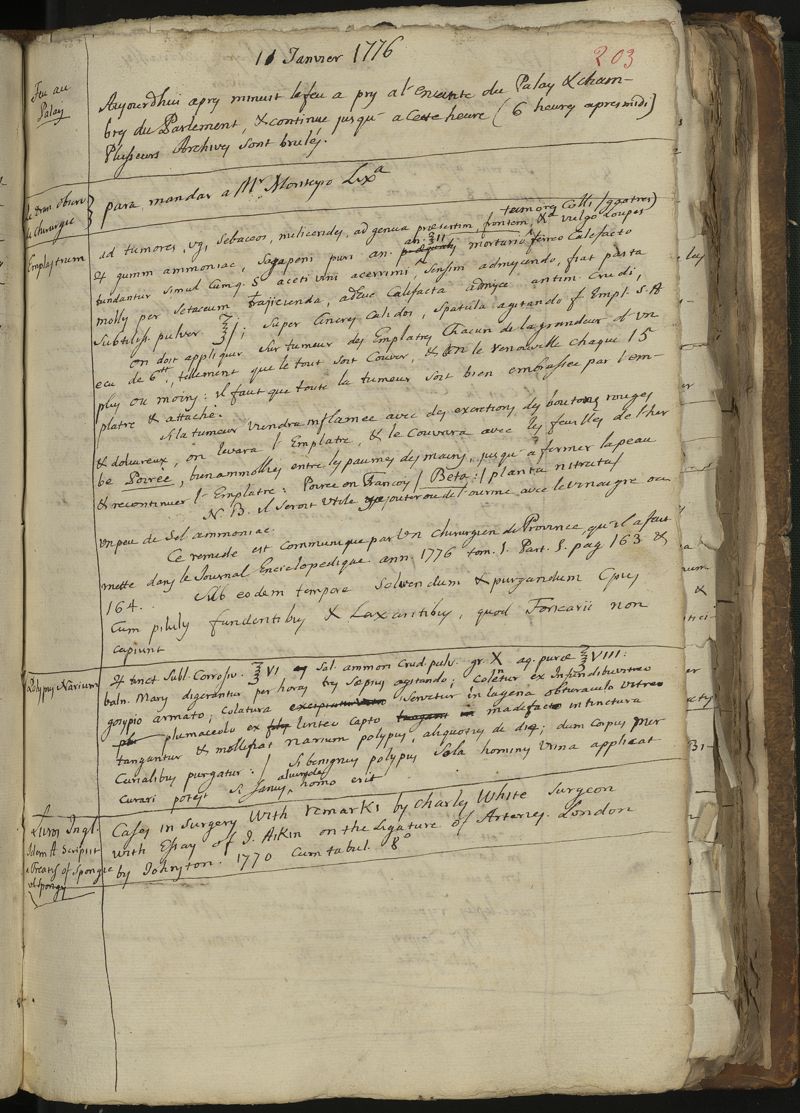 11 Janvier 1776
203
Feu au
Palay
Aujourdhui apry minuit le feu a pry a l'enceinte du Palay & cham-
bry du Parlement, & continue jusqu' a cette heure (6 heury apres midi)
Plusieurs Archives sont brulés.
Chirurgie
para mandar a Mr. Monteyro Lixa
tumores Colli / goetres)
Emplastrum
ad tumores, vg, sebaceos, milicerides, ad genua præsertim, frontem, & vulgo loupes
an. ℥II
gumm ammoniac, Sagapeni puri an. mortario ferreo Calefacto
tundantur simul Cumq. S aceti vini acerrimi, sensim admyendo, fiat pasta
molly per setaceum trajicienda, adhuc Calefacta adnyce antim Crudi,
Subtiliss pulver ℥; super Cinerey Calidos, Spatula agitando f Empl. S. A
On doit appliquer sur tumeur des Emplatres Chacun de la grandeur d'un
ecu de 6tt, tellement que le tout soit Couver, & on le renouvelle chaque 15
plus ou moins: il faut que toute la tumeur soit bien embrassée par l'em-
platre & attaché.
Si la tumeur viendra inflamee avec des excrétions, des boutons rouges
& doloureux, on levara l'Emplatre, & le Couvrira avec les feuilles de l'her
be Poirée, bien amollies entre les paumes des mains, jusqu' a fermer la peau
& recontinuer l'Emplatre: Poirée on Francois / Beta: / planta nitrata /
N. B. il seroit utile ajouter ou de l'ourine avec le vinaigre ou
un peu de Sel ammoniac.
Ce remede est Communique par Un Chirurgien de Province qu'il a fait
mettre dans le Journal Enciclopedique. ann. 1776 tom. 1. Part. 1. pag 163 &
164. Sub eodem tempore Solvendum & purgandum Corpus
Cum pilulis fundentibus & Laxantibus, quod Foricarii non
capiunt
Polypus Narium
tinct Subl. Corrosiv. ℥VI Sal. ammon Crud. pulv. gr. X in aq. puræ ℥VIII:
baln. Mary digerantur per horas try sæpius agitando; Coletur ex Infundibu vitreo
gosypio armato; Colatura servetur in lagena obturaculo vitreo
plumaceolo ex linteo capto madefacto in tinctura
tangantur & mollifiat narium polypus, aliquoties de die; dum Corpus Mer
Curialibus purgatur: / Si benignus polypus Sola hominis Urina applicat
Curari potest si Sanus homo erit
alundes
Livros Ingl.
Idem A. Scripsit
a Treatis of Sponge
Cases in Surgery With remarks by Charles White Surgeon
with Essay of J. Aikin on the Ligature of Arteries. London
by Johnston. 1770 Cum tabul. 8o